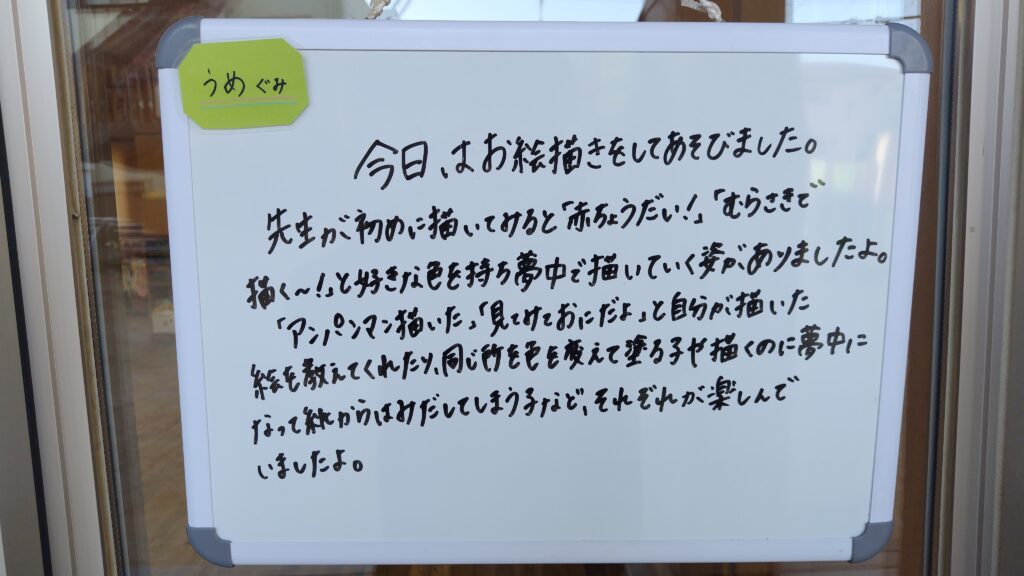 うめ ぐみ
今日、はお絵描きをしてあそびました。
先生が初めに描いてみると「赤ちょうだい!」「むらさきで
描く～!」と好きな色を持ち夢中で描いていく姿がありましたよ。
「アンパンマン描いた」「見てみておにだよ」と自分が描いた
絵を教えてくれたり、同じ所を色を変えて塗る子や描くのに夢中に
なって紙からはみだしてしまう子など、それぞれが楽しんで
いましたよ。